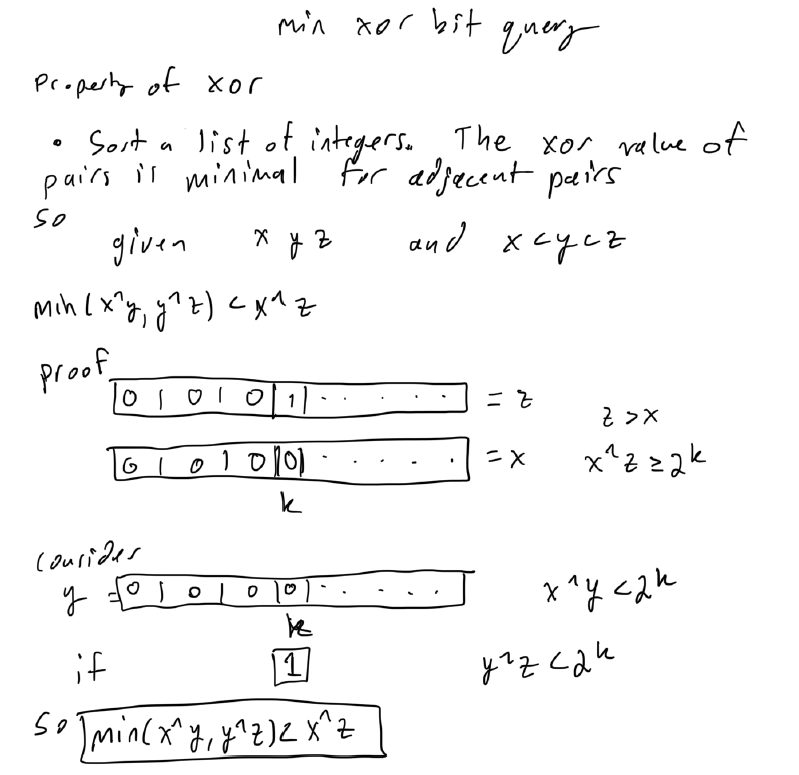 min xor bit query
Property of xor
• Sort a list of integers. The xor value of
pairs is minimal for adjacent pairs
so
given x y z and x < y < z
min(x^y, y^z) < x^z
proof
0 1 0 1 0 1 . . . . . = z
z > x
0 1 0 1 0 0 . . . . . = x x^z ≥ 2^k
k
consider
y = 0 1 0 1 0 0 . . . . . x^y < 2^k
k
if 1 y^z < 2^k
so min(x^y, y^z) < x^z